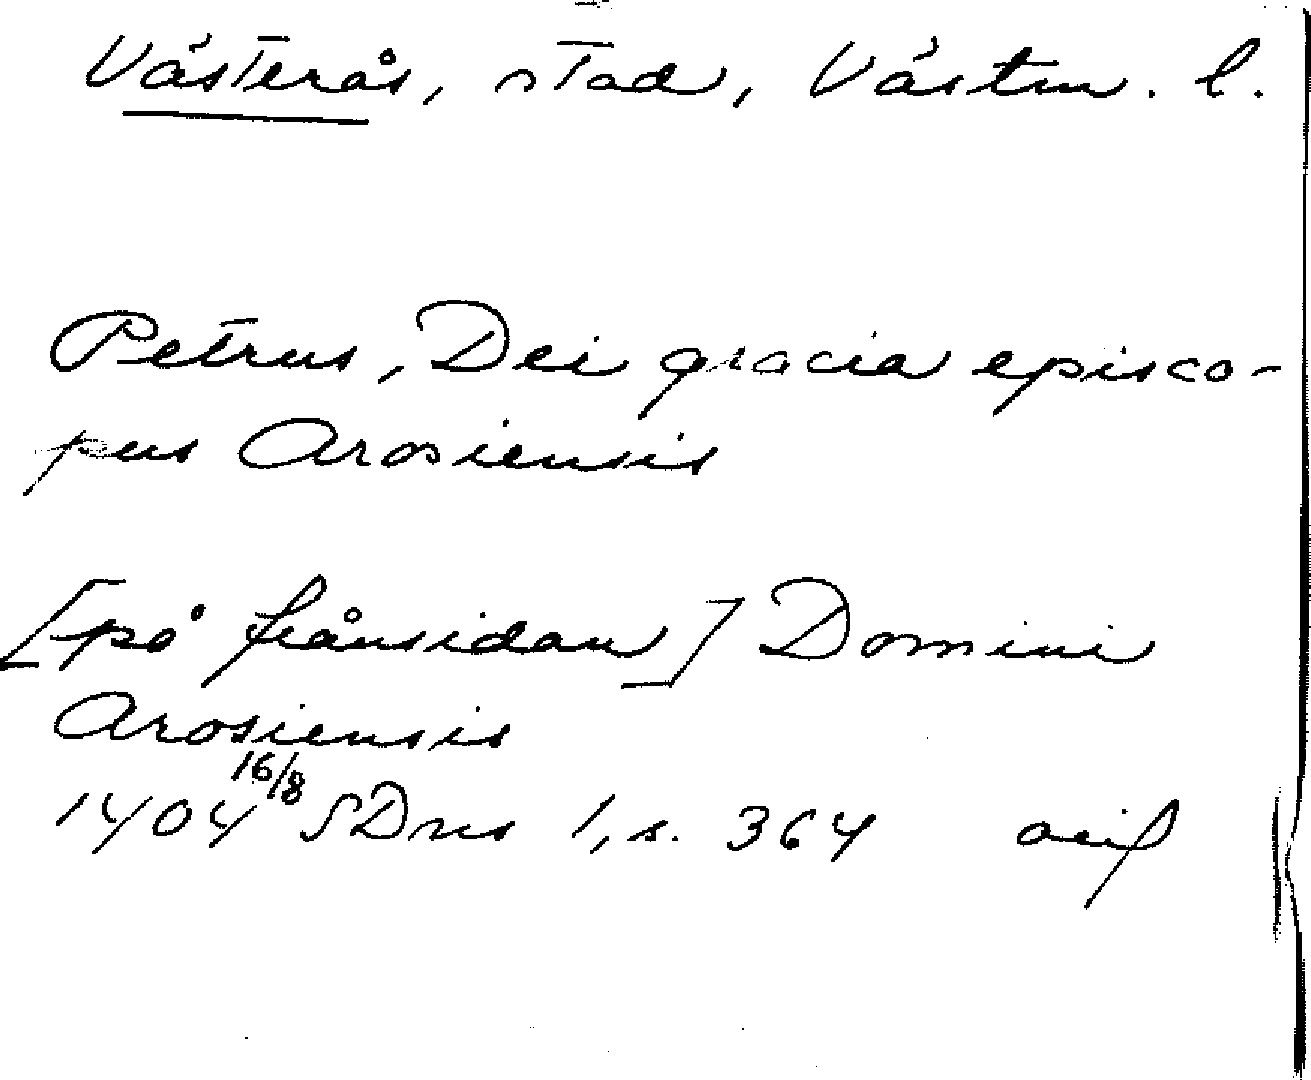 Västerås, stad, Västm. l.
Petrus, Dei gracia episco-
pus Arosiensis
[på frånsidan] Domini
Arosiensis
1404 16/8 SDns 1, s. 364 avif